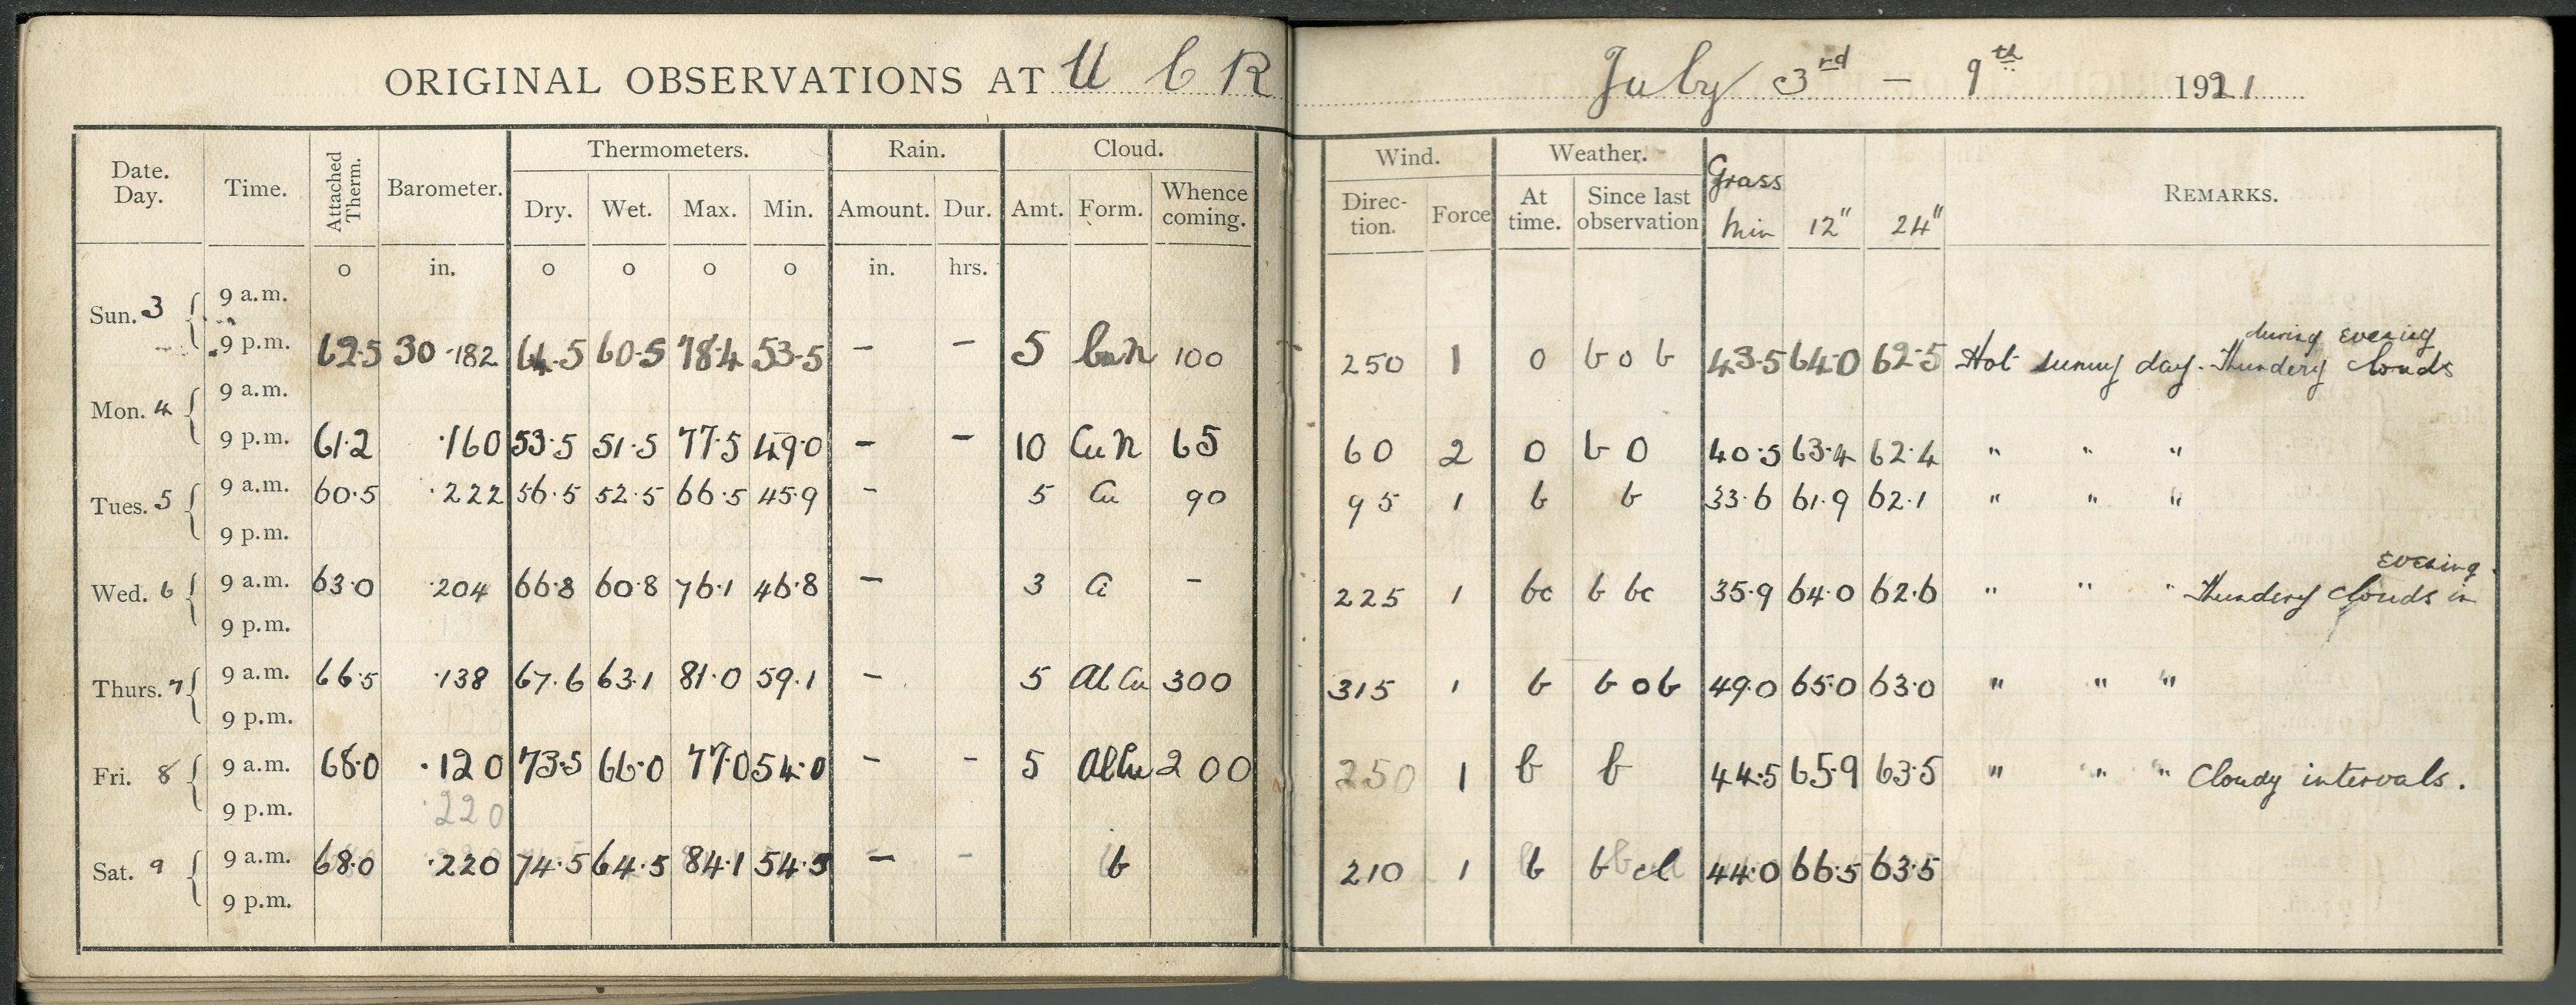 ORIGINAL OBSERVATIONS AT U C R July 3rd – 9th 1921
Date. Day. Time. Attached Therm. Barometer. Thermometers. Rain. Cloud. Wind. Weather. Grass REMARKS.
Dry. Wet. Max. Min. Amount. Dur. Amt. Form. Whence coming. Direc-tion. Force At time. Since last observation Min 12" 24"
o in. o o o o in. hrs.
Sun. 3 9 a.m.
during evening
9 p.m. 62.5 30 .182 64.5 60.5 78.4 53.5 – – 5 CuN 100 250 1 o b o b 43.5 64.0 62.5 Hot sunny day. Thundery clouds
Mon. 4 9 a.m.
9 p.m. 61.2 .160 53.5 51.5 77.5 49.0 – – 10 Cu N 65 60 2 O b O 40.5 63.4 62.4 " " "
Tues. 5 9 a.m. 60.5 .222 56.5 52.5 66.5 45.9 – 5 Cu 90 95 1 b b 33.6 61.9 62.1 " " "
9 p.m.
evening.
Wed. 6 9 a.m. 63.0 .204 66.8 60.8 76.1 46.8 – 3 Ci – 225 1 bc b bc 35.9 64.0 62.6 " " " Thundery clouds in
9 p.m.
Thurs. 7 9 a.m. 66.5 .138 67.6 63.1 81.0 59.1 – 5 Al Cu 300 315 1 b b o b 49.0 65.0 63.0 " " "
9 p.m.
Fri. 8 9 a.m. 68.0 .120 73.5 66.0 77.0 54.0 – – 5 AlCu 200 250 1 b b 44.5 65.9 63.5 " " " Cloudy intervals.
9 p.m. .220
Sat. 9 9 a.m. 68.0 .220 74.5 64.5 84.1 54.5 – – b 210 1 b b cl 44.0 66.5 63.5
9 p.m.